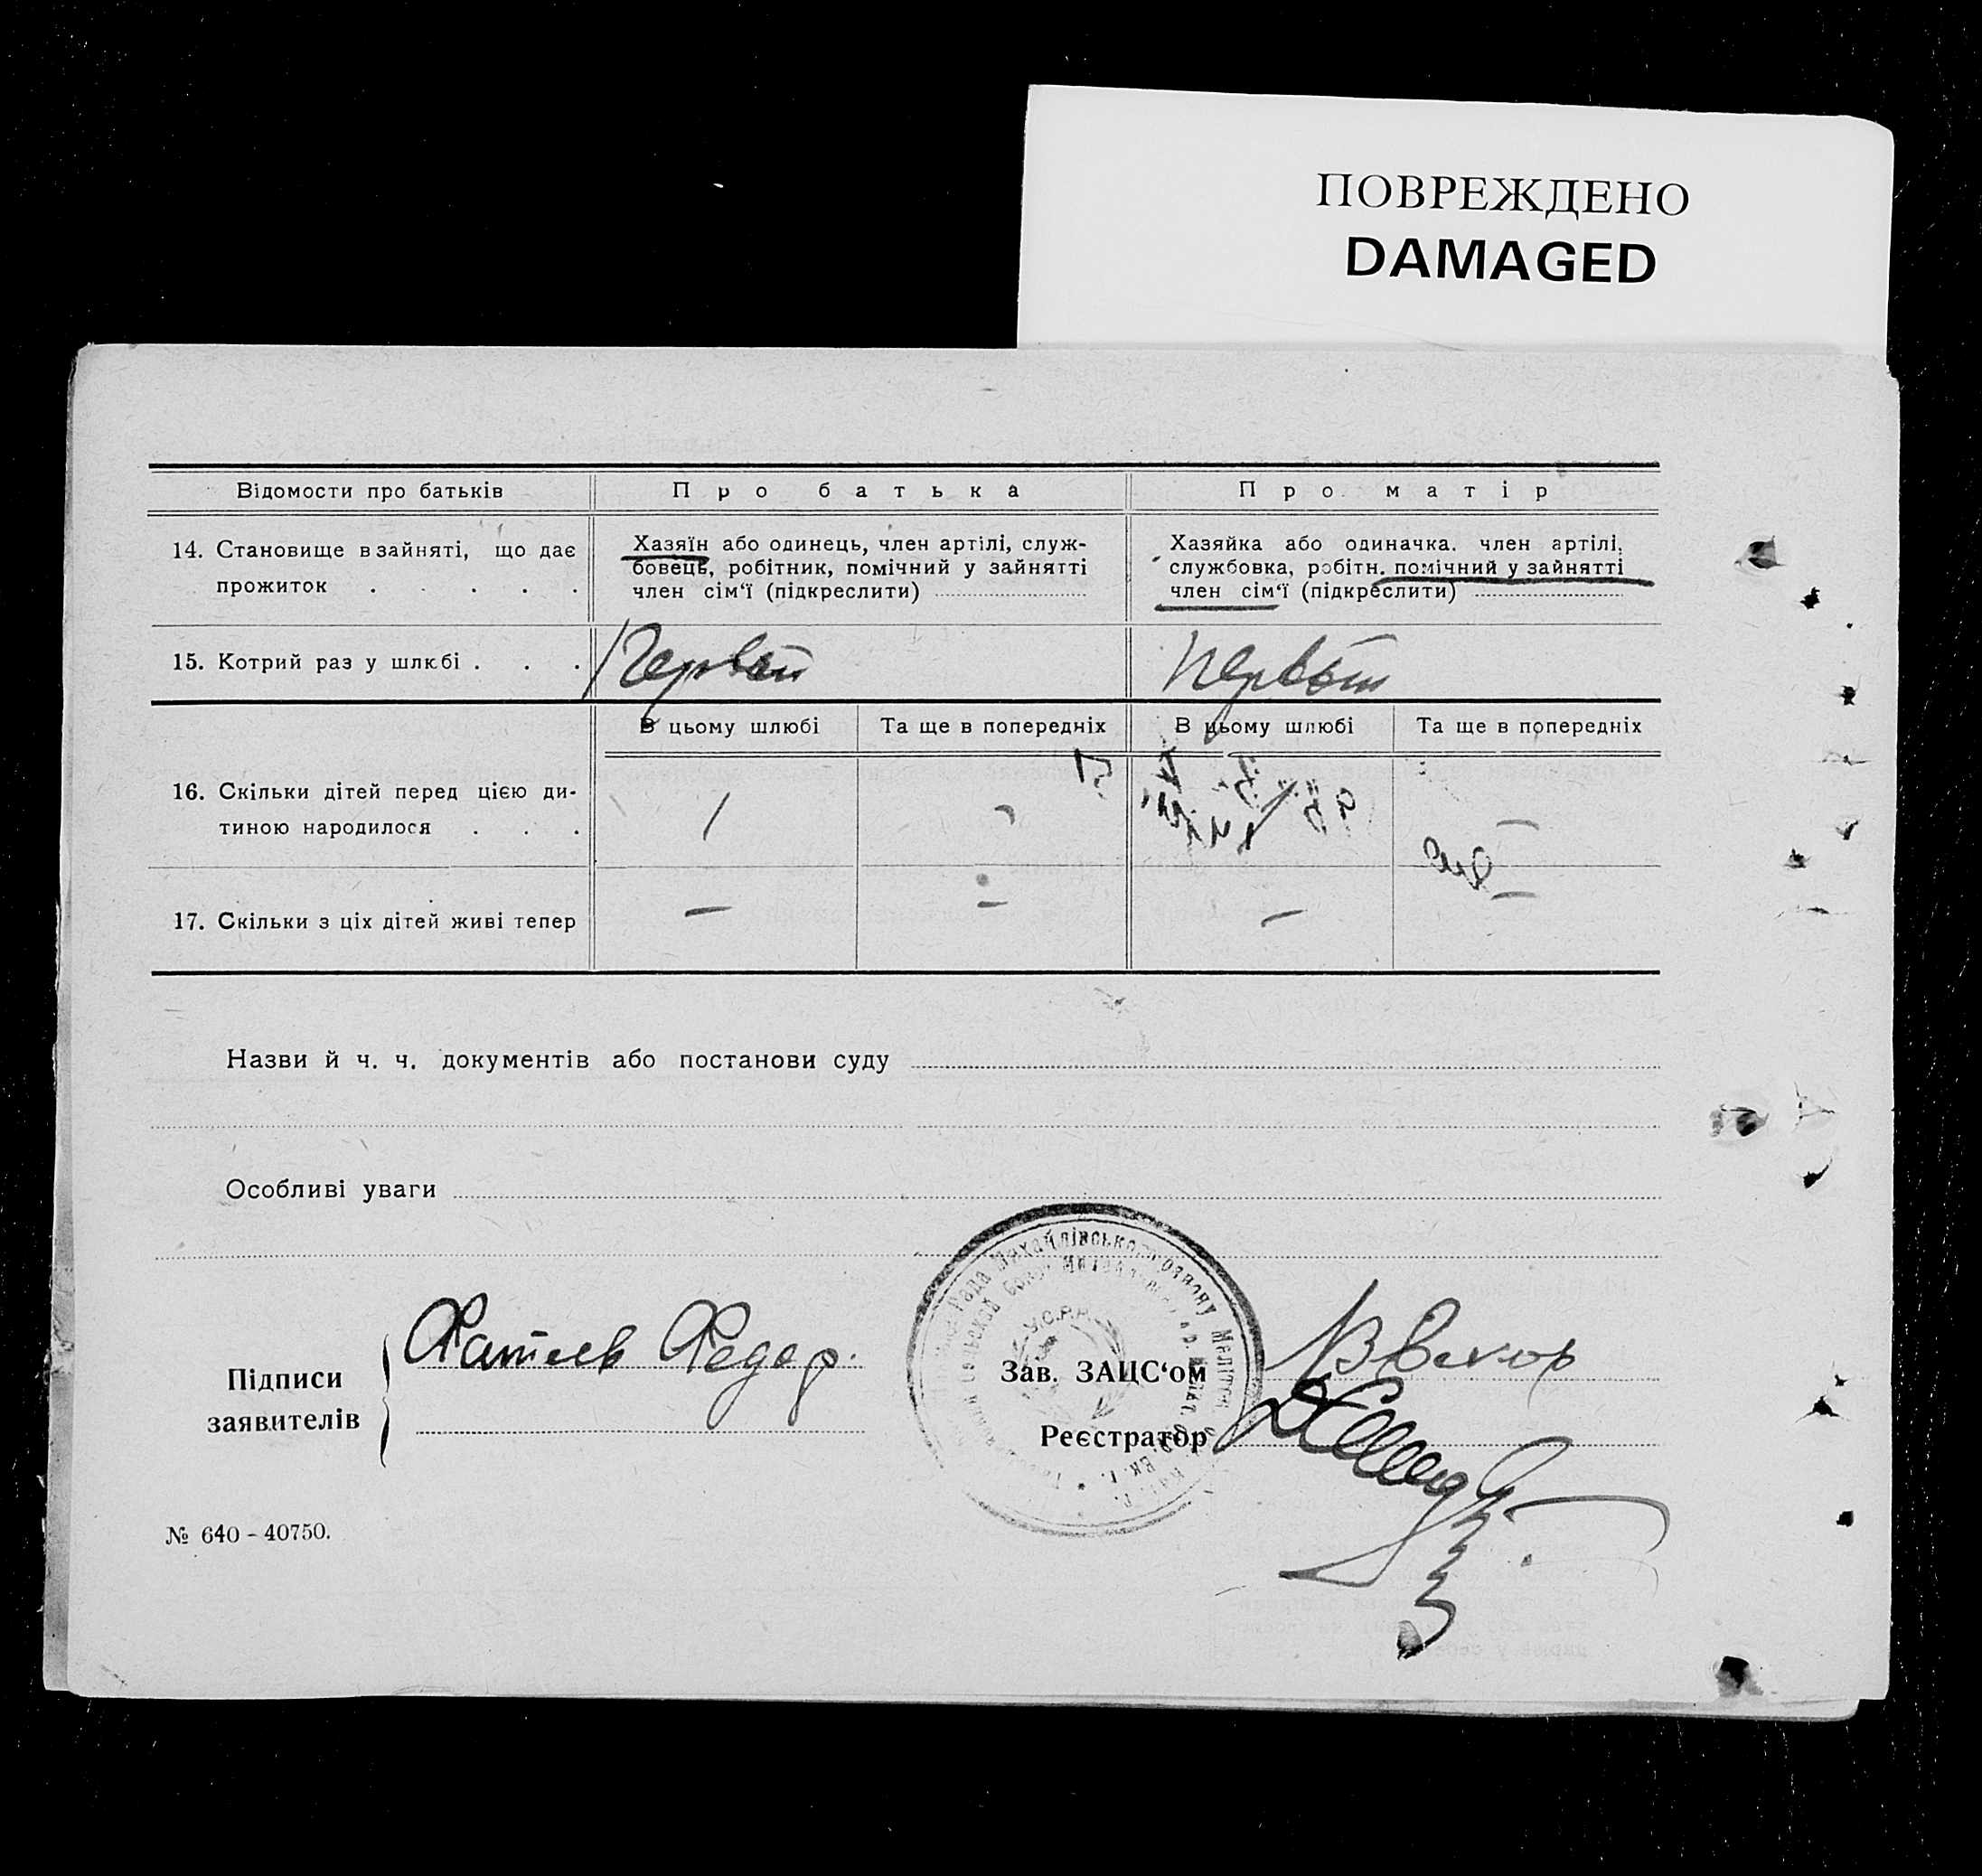 ПОВРЕЖДЕНО
DAMAGED
Відомости про батьків
Про батька
Про матір
14. Становище в зайняті, що дає прожиток . . . . .
Хазяїн або одинець, член артілі, служ-
бовець, робітник, помічний у зайнятті
член сім‘ї (підкреслити)
Хазяйка або одиначка. член артілі,
службовка, робітн. помічний у зайнятті
член сім‘ї (підкреслити)
15. Котрий раз у шлюбі . . .
Первый
Первый
В цьому шлюбі
Та ще в попередніх
В цьому шлюбі
Та ще в попередніх
16. Скільки дітей перед цією ди-
тиною народилося . . .
/
17. Скільки з ціх дітей живі тепер
—
—
—
—
Назви й ч. ч. документів або постанови суду
Особливі уваги
Підписи
заявителів
Федор.
Рада Михайлівського району Меліт
У.С.Р.Р.
Зав. ЗАЦС‘ом
Реєстратор
№ 640 - 40750.